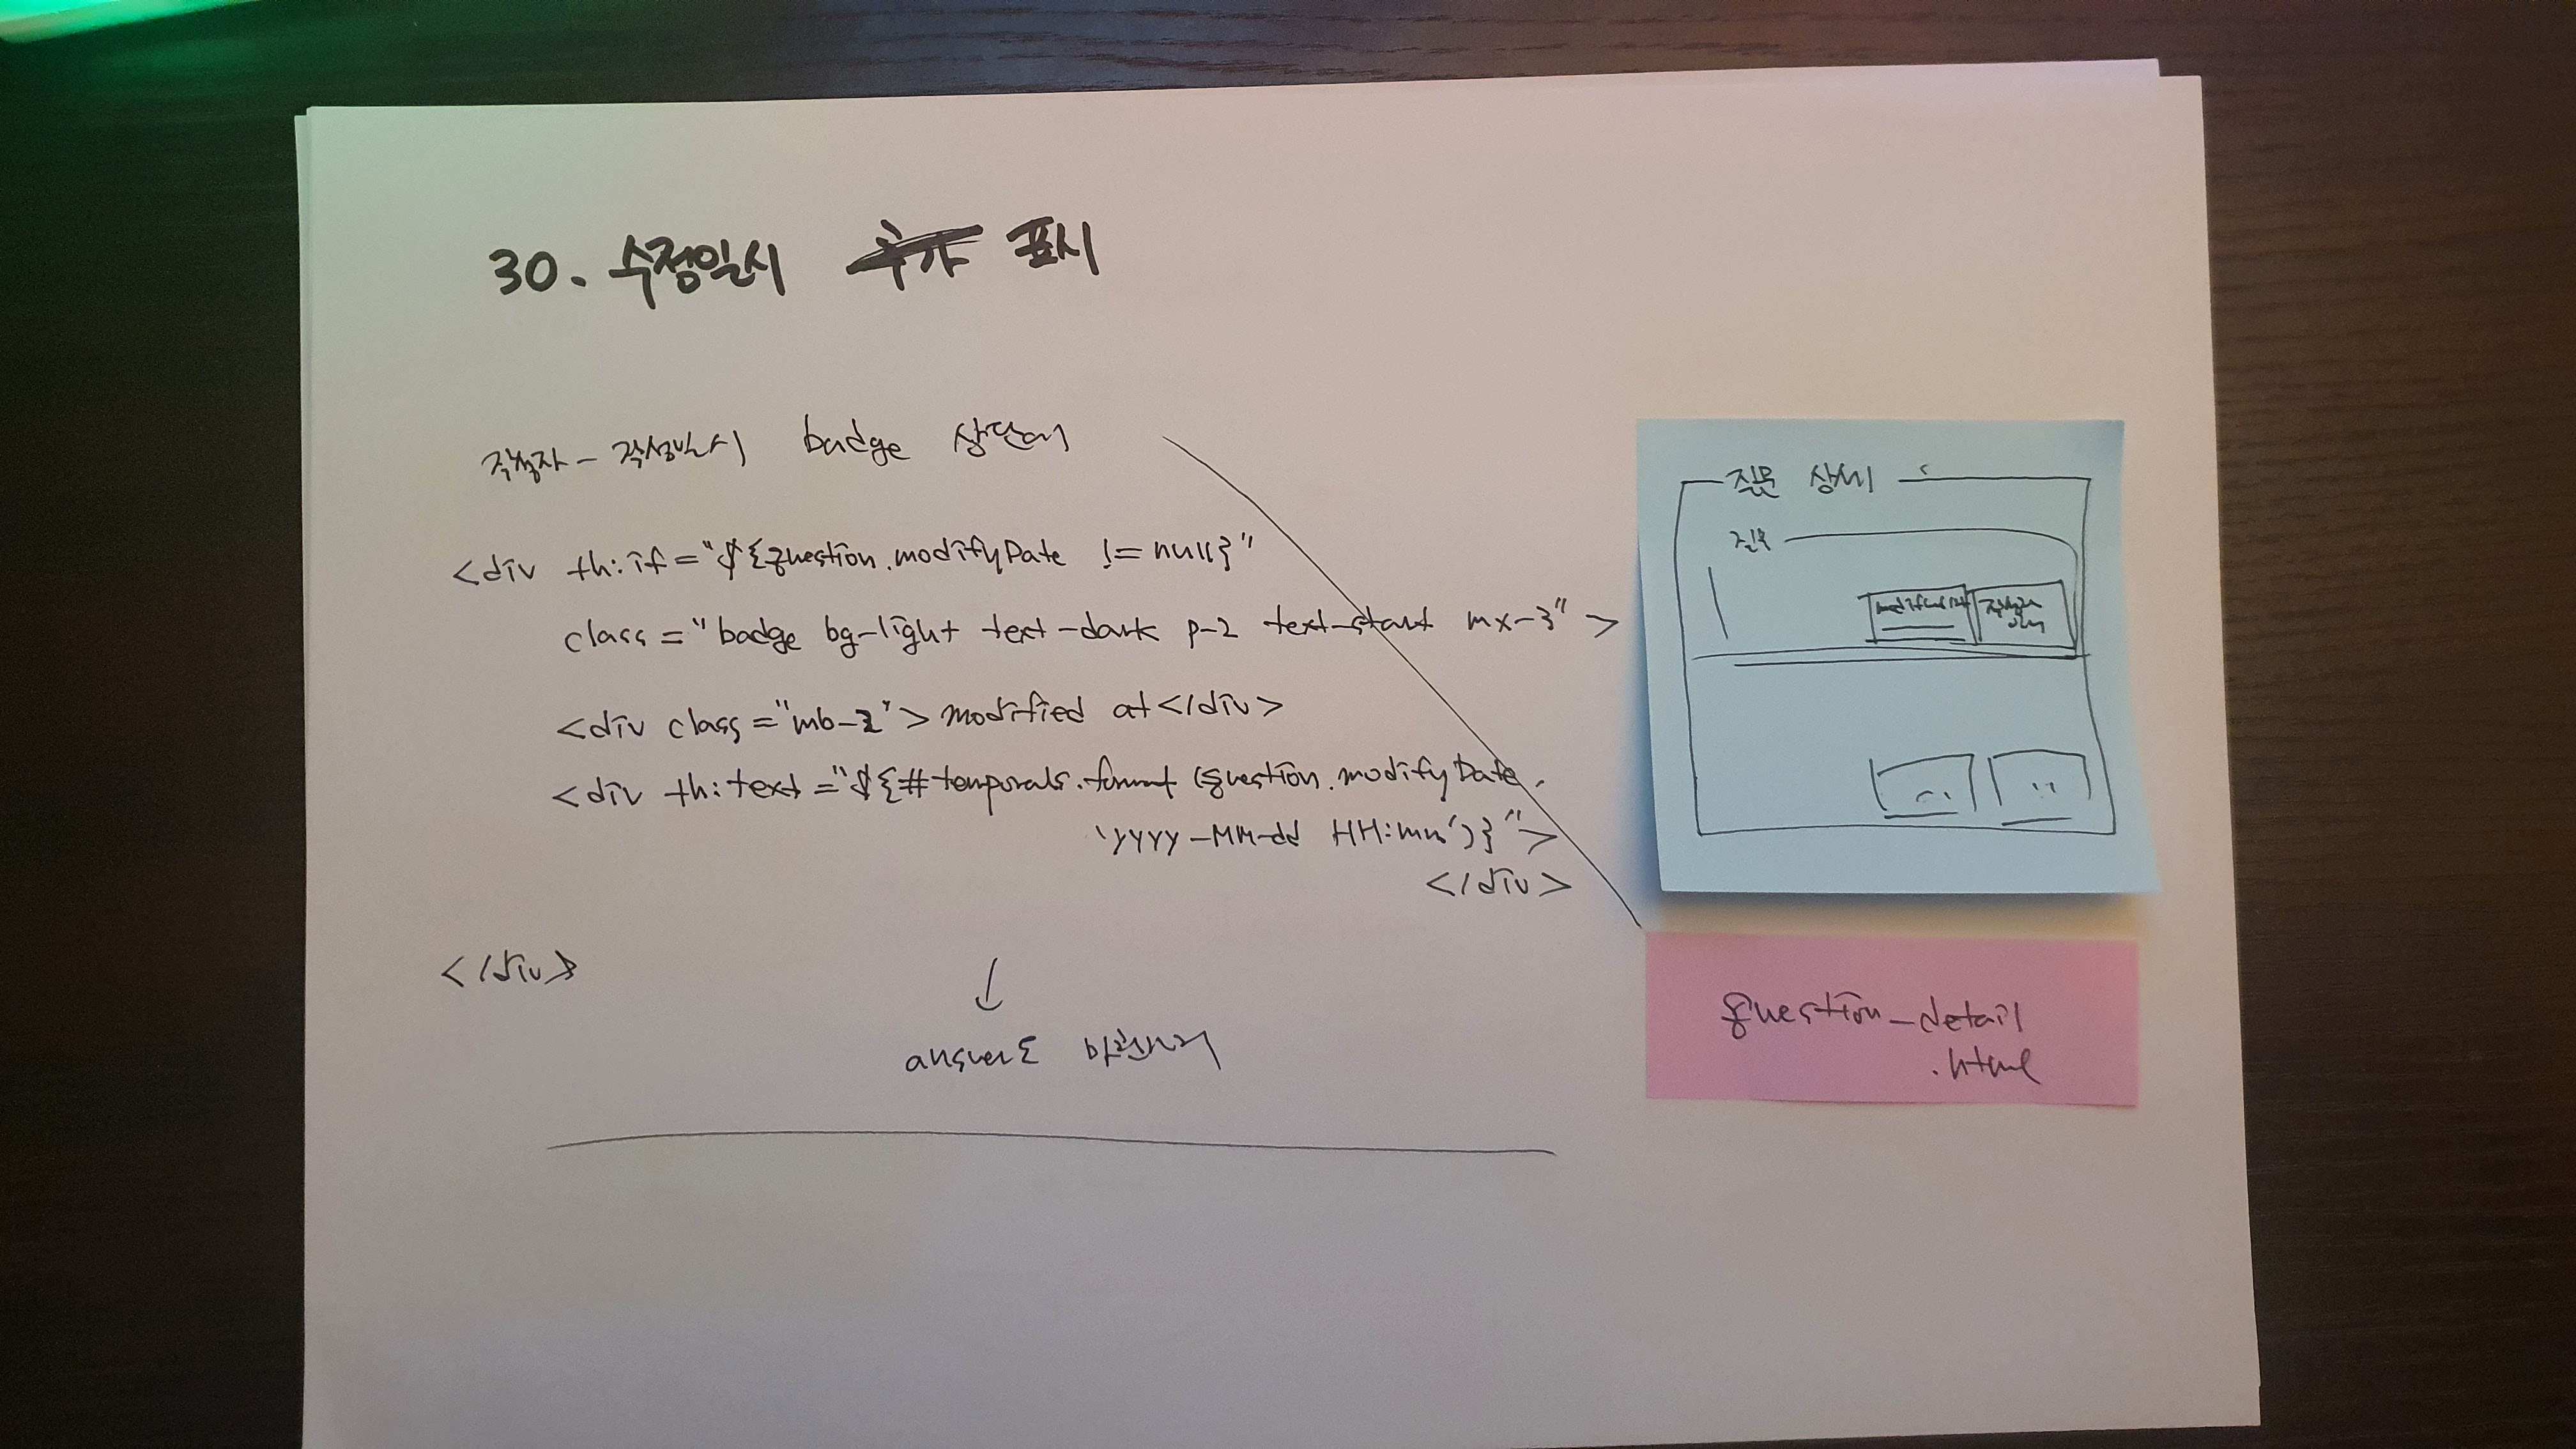 30. 수정일시 추가 표시
작성자 - 작성일시 badge 상단에
<div th:if="${question.modifyDate != null}"
class="badge bg-light text-dark p-2 text-start mx-3">
<div class="mb-2">modified at</div>
<div th:text="${#temporals.format(question.modifyDate,
'yyyy-MM-dd HH:mm')}">
</div>
</div>
↓
answer도 마찬가지
질문 상세
질문
modified at
작성자
question_detail
.html